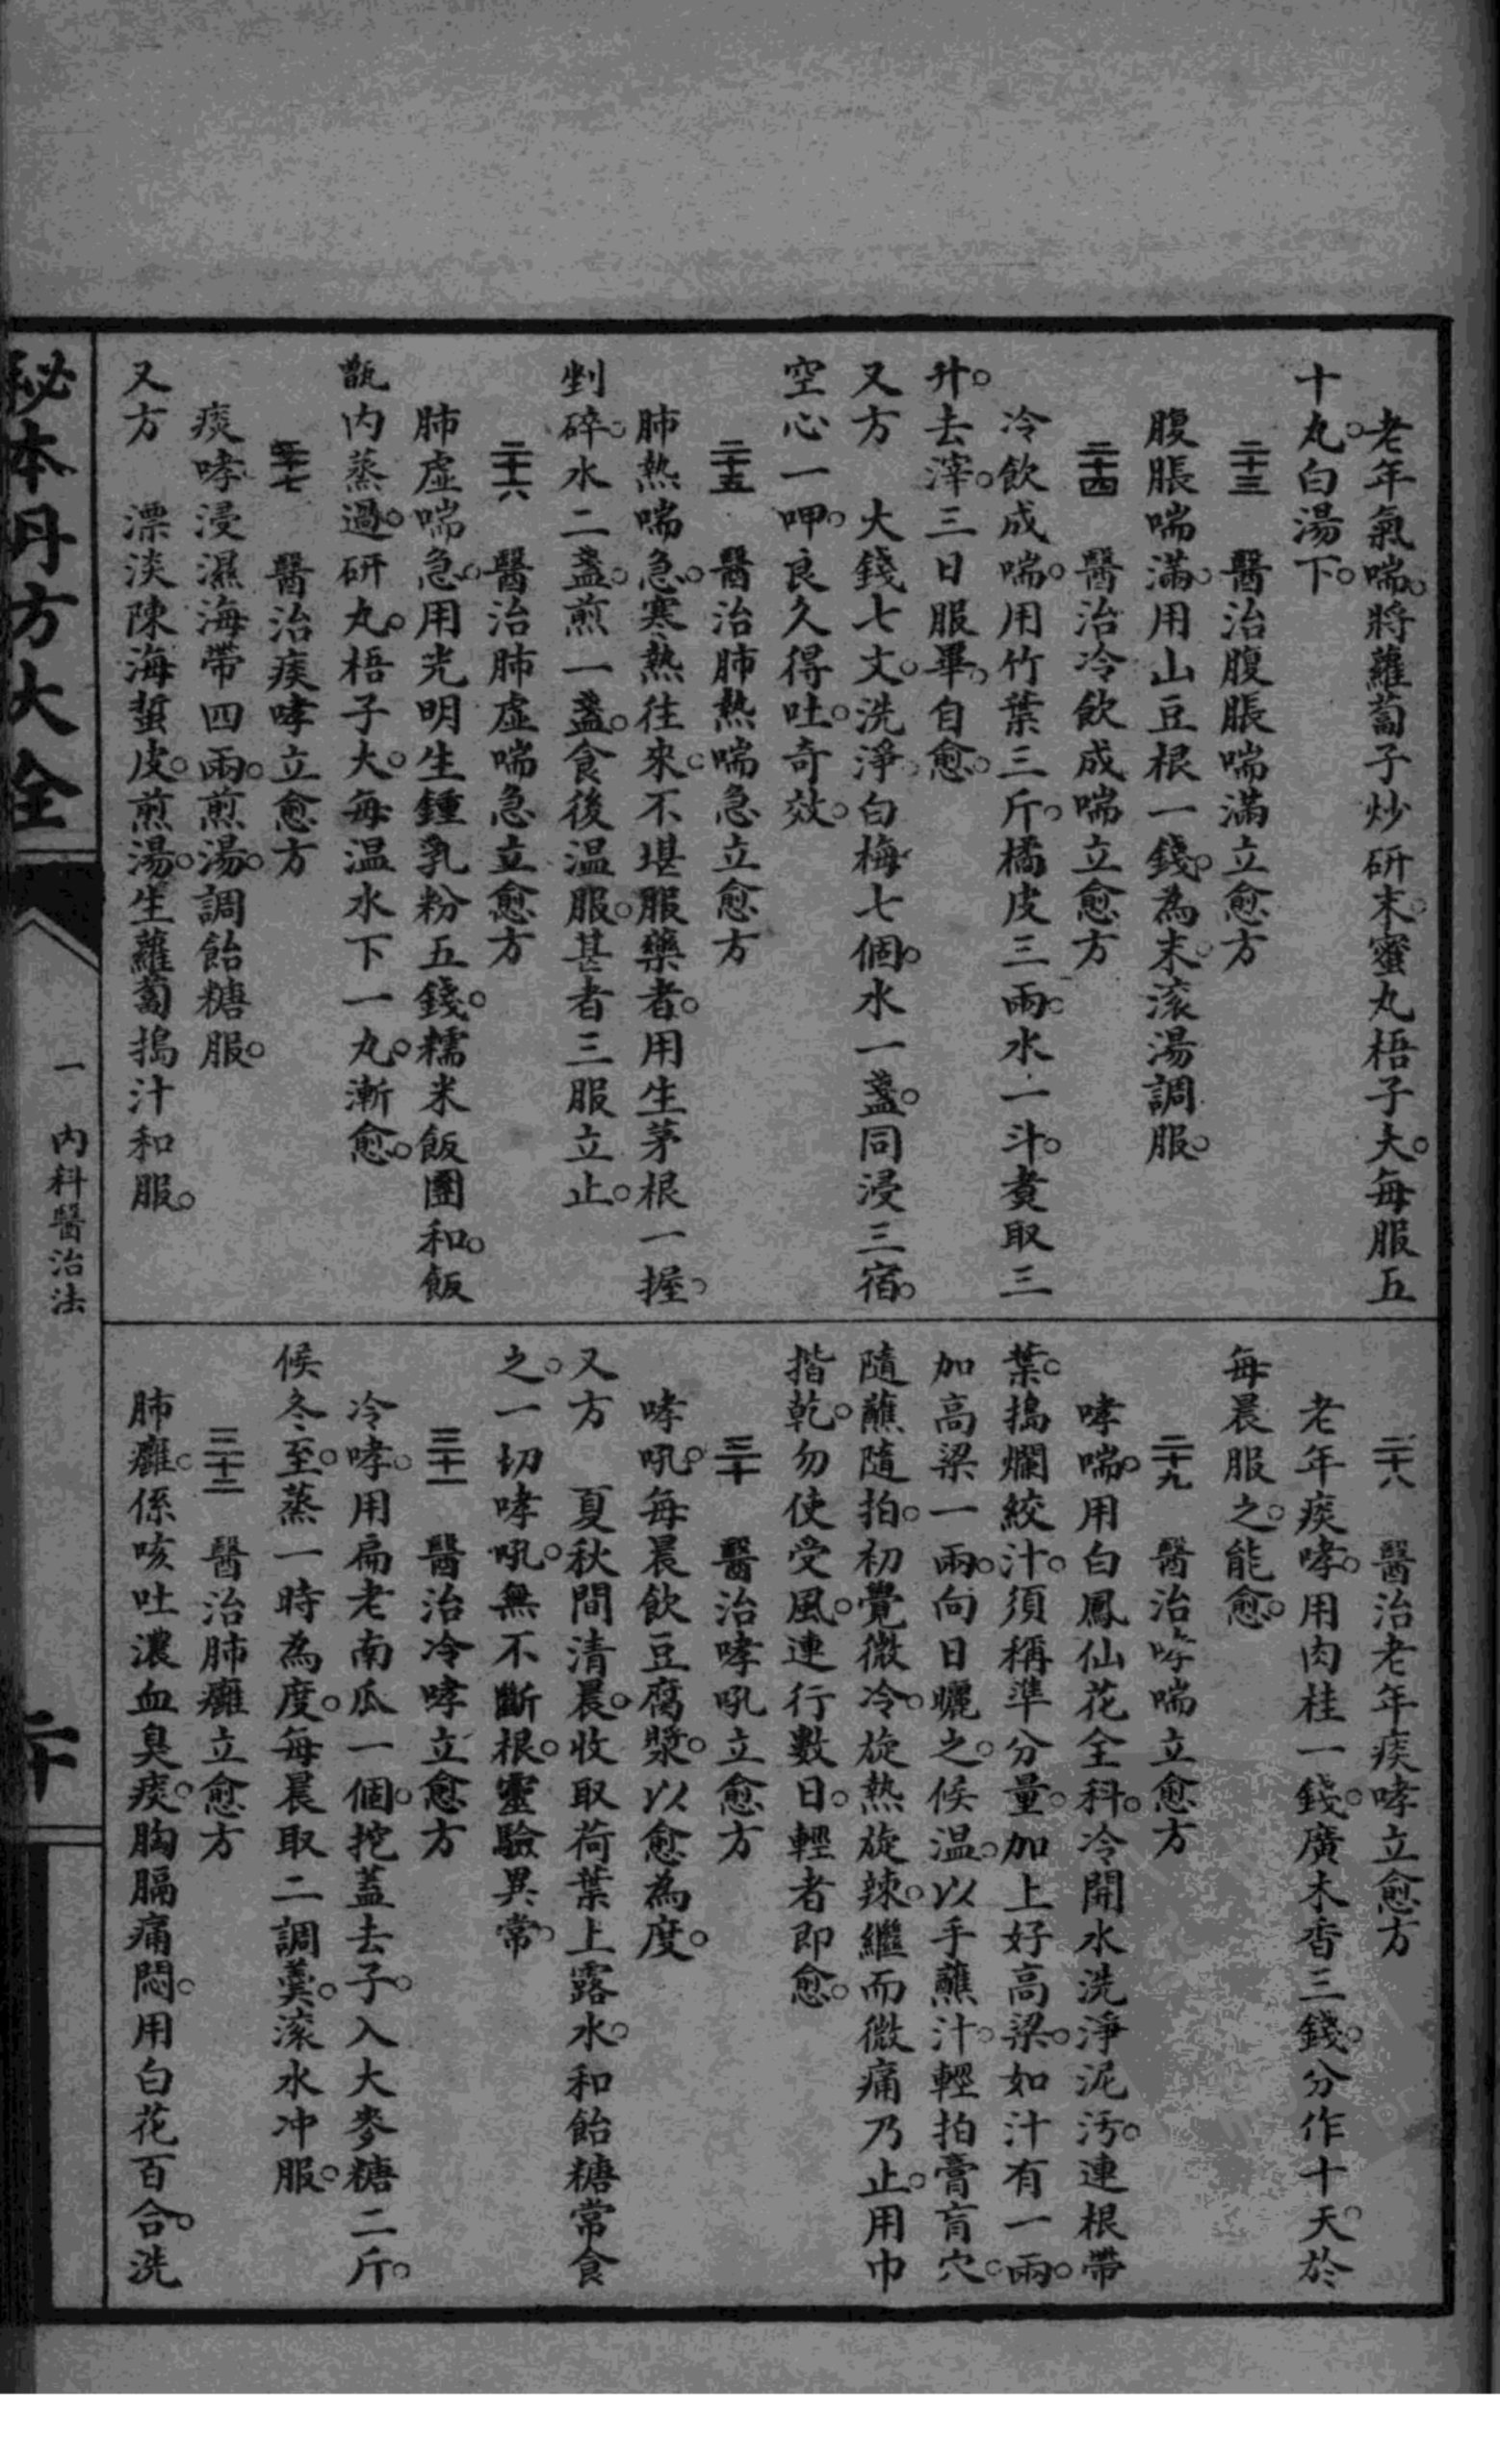 老年氣喘。將蘿蔔子炒研末。蜜丸梧子大。每服五
十丸。白湯下。
二十三　醫治腹脹喘滿立愈方
腹脹喘滿。用山豆根一錢。為末。滾湯調服。
二十四　醫治冷飲成喘立愈方
冷飲成喘。用竹葉三斤。橘皮三兩。水一斗。煮取三
升。去滓。三日服畢。自愈。
又方　大錢七文。洗淨。白梅七個。水一盞。同浸三宿。
空心一呷。良久得吐。奇效。
二十五　醫治肺熱喘急立愈方
肺熱喘急。寒熱往來。不堪服藥者。用生茅根一握。
剉碎。水二盞。煎一盞。食後溫服。甚者三服立止。
二十六　醫治肺虛喘急立愈方
肺虛喘急。用光明生鍾乳粉五錢。糯米飯團和。飯
甑內蒸過。研丸。梧子大。每溫水下一丸。漸愈。
二十七　醫治痰哮立愈方
痰哮浸濕海帶四兩。煎湯。調飴糖服。
又方　漂淡陳海蜇皮。煎湯。生蘿蔔搗汁和服。
二十八　醫治老年痰哮立愈方
老年痰哮。用肉桂一錢。廣木香三錢。分作十天。於
每晨服之。能愈。
二十九　醫治哮喘立愈方
哮喘。用白鳳仙花全科。冷開水洗淨泥污。連根帶
葉。搗爛絞汁。須稱準分量。加上好高粱。如汁有一兩。
加高粱一兩。向日曬之。候溫。以手蘸汁。輕拍膏肓穴。
隨蘸隨拍。初覺微冷。旋熱旋辣。繼而微痛乃止。用巾
揩乾。勿使受風。連行數日。輕者即愈。
三十　醫治哮吼立愈方
哮吼。每晨飲豆腐漿。以愈為度。
又方　夏秋間清晨。收取荷葉上露水。和飴糖常食
之。一切哮吼。無不斷根。靈驗異常。
三十一　醫治冷哮立愈方
冷哮。用扁老南瓜一個。挖蓋去子。入大麥糖二斤。
候冬至。蒸一時為度。每晨取二調羹。滾水冲服。
三十二　醫治肺癰立愈方
肺癰。係咳吐濃血臭痰。胸膈痛悶。用白花百合。洗
秘本丹方大全
一　內科醫治法
二十